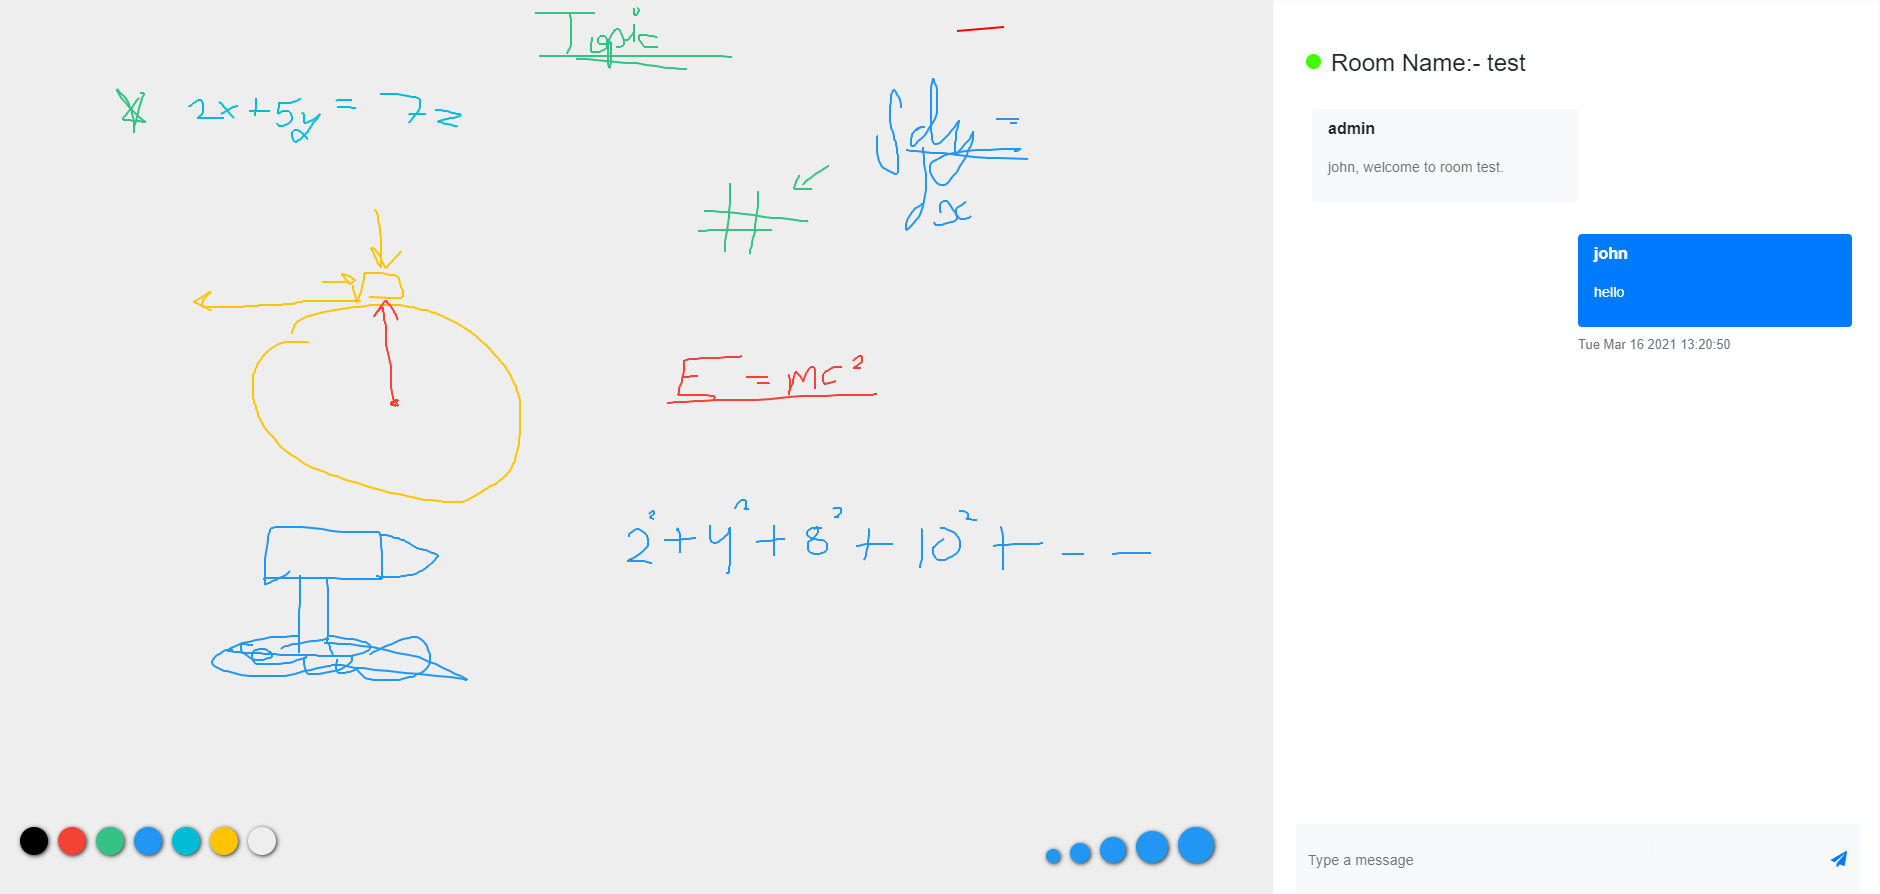 Topic
* 2x + 5y = 7z
∫ dy =
dx
#
E = mc²
2² + 4² + 8² + 10² + _ _
Room Name:- test
admin
john, welcome to room test.
john
hello
Tue Mar 16 2021 13:20:50
Type a message